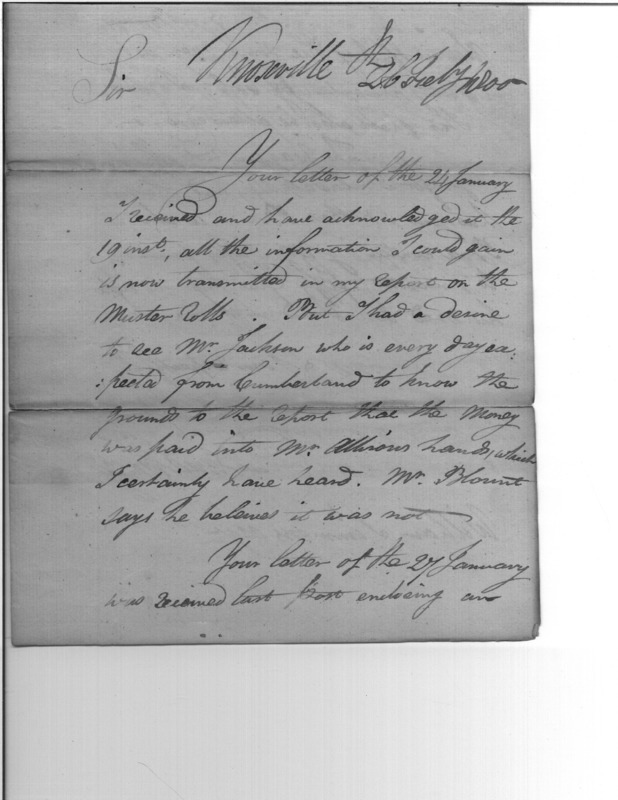 Knoxville 26 Feby 1800
Sir
Your letter of the 24 January
I received and have acknowledged it the
19 inst, all the information I could gain
is now transmitted in my report on the
Muster Rolls . But I had a desire
to see Mr Jackson who is every day ex:
:pected from Cumberland to know the
grounds to the report that the Money
was paid into Mr hands, which
I certainly have heard. Mr Blount
says he beleives it was not
Your letter of the 27 January
was received last Post enclosing an